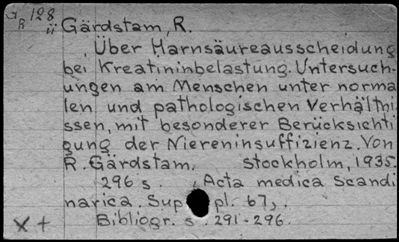 G R 128 ü Gärdstam, R.
Über Harnsäureausscheidung
bei Kreatininbelastung. Untersuch-
ungen am Menschen unter norma
len und pathologischen Verhältni
ssen, mit besonderer Berücksichti
gung der Niereninsuffizienz. Von
R. Gärdstam. Stockholm, 1935.
296 s. (Acta medica Scandi
narica. Suppl. 67).
Bibliogr. s. 291-296.
X +